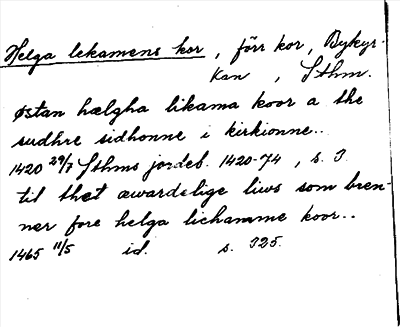 Helga lekamens kor, förr kor, Bykyr-
kan, Sthm.
østan hælgha likama koor a the
sudhre sidhonne i kirkionne..
1420 29/7 Sthms jordeb. 1420-74, s. 3
til thet æwardelige liws som bren-
ner fore helga lichamme koor..
1465 11/5 id. s. 325.